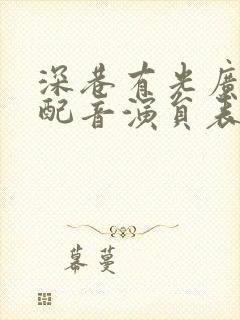 深巷有光廣
配音演員表
幕蔓